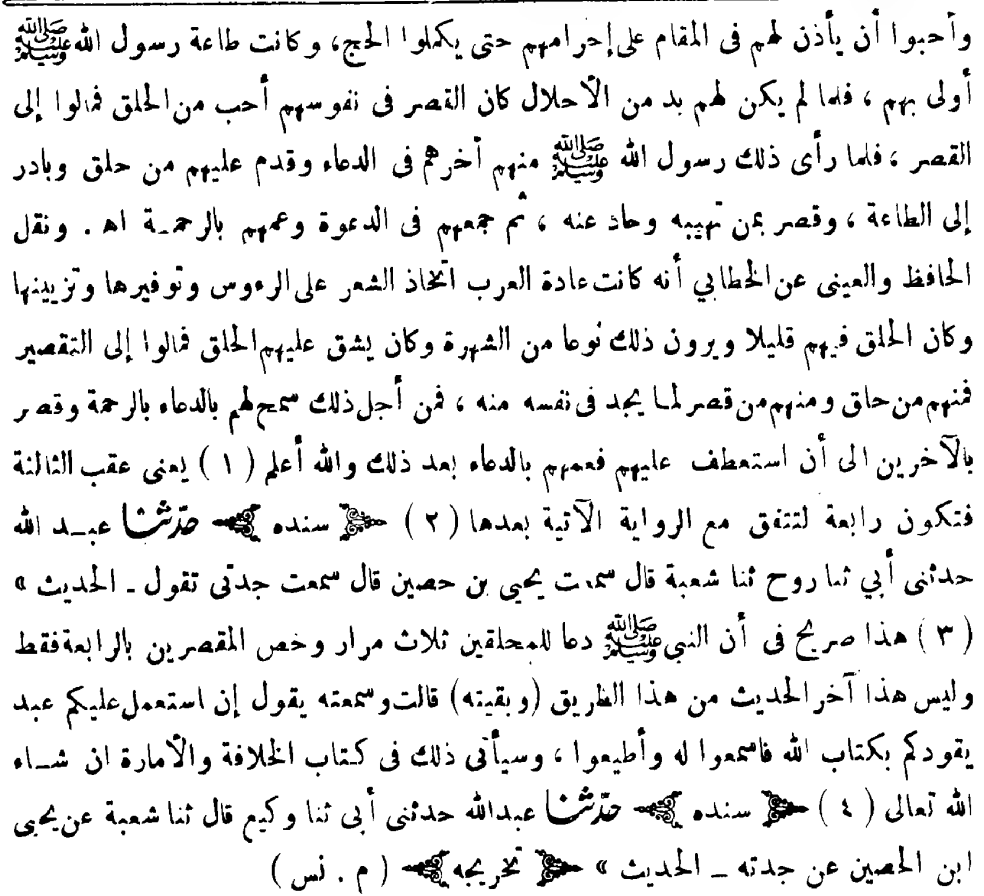 وأحبوا أن يأذن لهم فى المقام على إحرامهم حتى يكملوا الحج، وكانت طاعة رسول الله ﷺ
أولى بهم ، فلما لم يكن لهم بد من الأحلال كان القصر فى نفوسهم أحب من الحلق فمالوا إلى
القصر ، فلما رأى ذلك رسول الله ﷺ منهم أخرهم فى الدعاء وقدم عليهم من حلق وبادر
إلى الطاعة ، وقصر بمن تهيبه وحاد عنه ، ثم جمعهم فى الدعوة وعمهم بالرحمة اهـ . ونقل
الحافظ والعينى عن الخطابي أنه كانت عادة العرب اتخاذ الشعر على الرءوس وتوفيرها وتزيينها
وكان الحلق فيهم قليلا ويرون ذلك نوعا من الشهرة وكان يشق عليهم الحلق فمالوا إلى التقصير
فمنهم من حلق ومنهم من قصر لما يجد فى نفسه منه ، فمن أجل ذلك سمح لهم بالدعاء بالرحمة وقصر
بالآخرين الى أن استعطف عليهم فعمهم بالدعاء بعد ذلك والله أعلم ( ١ ) يعنى عقب الثالثة
فتكون رابعة لتتفق مع الرواية الآتية بعدها ( ٢ ) ﴿ سنده ﴾ حدّثنا عبد الله
حدثنى أبي ثنا روح ثنا شعبة قال سمعت يحيى بن حصين قال سمعت جدتى تقول ـ الحديث »
( ٣ ) هذا صريح فى أن النبى ﷺ دعا للمحلقين ثلاث مرار وخص المقصرين بالرابعة فقط
وليس هذا آخر الحديث من هذا الطريق (وبقيته) قالت وسمعته يقول إن استعمل عليكم عبد
يقودكم بكتاب الله فاسمعوا له وأطيعوا ، وسيأتى ذلك فى كتاب الخلافة والأمارة ان شاء
الله تعالى ( ٤ ) ﴿ سنده ﴾ حدّثنا عبدالله حدثنى أبى ثنا وكيع قال ثنا شعبة عن يحيى
ابن الحصين عن جدته ـ الحديث » ﴿ تخريجه ﴾ ( م . نس )